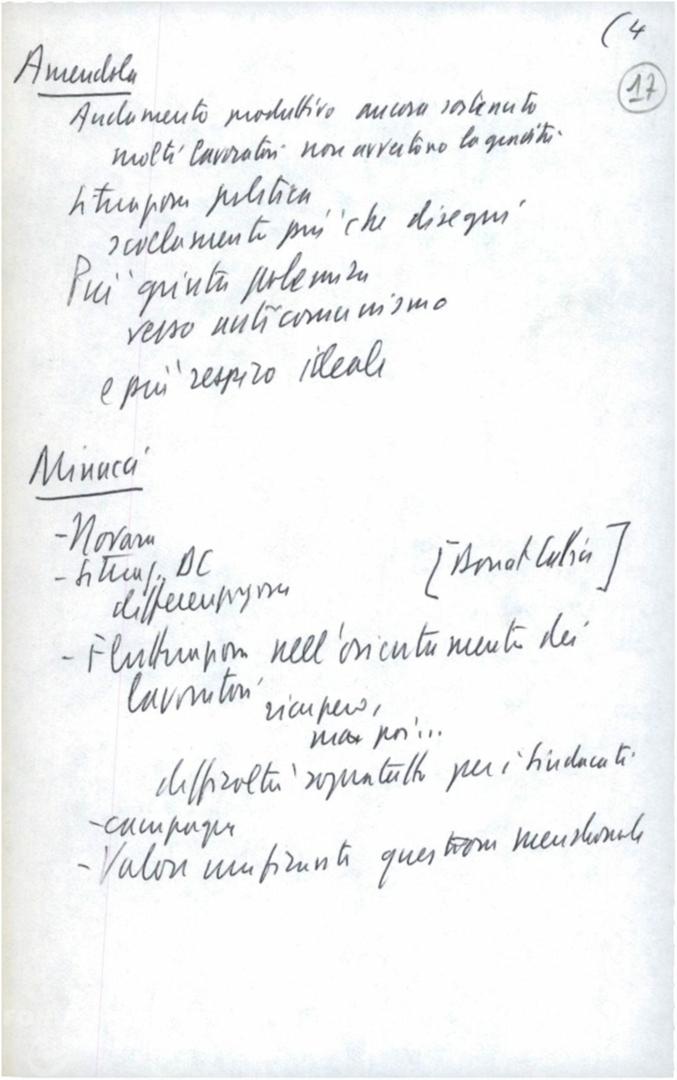 (4
17
Amendola
Andamento produttivo ancora sostenuto
molti lavoratori non avvertono la gravità
Situazione politica
scollamento più che disegni
Più grinta polemica
verso anticomunismo
e più respiro ideale
Minucci
- Novara
- Situaz. DC
differenziazioni
[Donat Cattin]
- Fluttuazioni nell'orientamento dei
lavoratori
ricupero,
ma poi...
difficoltà soprattutto per i sindacati
- campagna
- Valore unificante questione meridionale